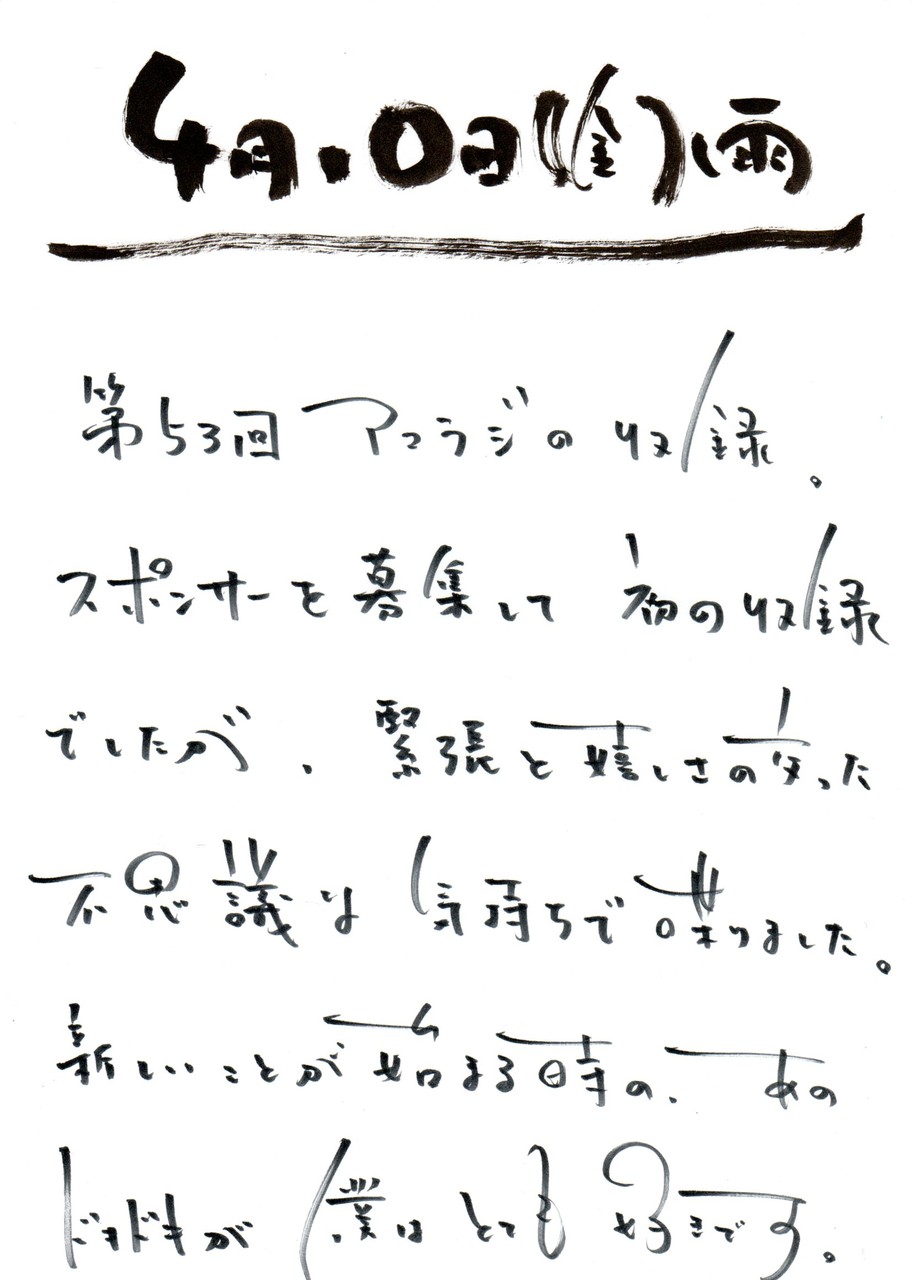 4月10日(金)雨
第53回アコラジの収録。
スポンサーを募集して 初の収録
でしたが、緊張と嬉しさの交った
不思議な気持ちで喋りました。
新しいことが始まる時の、あの
ドキドキが僕はとても好きです。